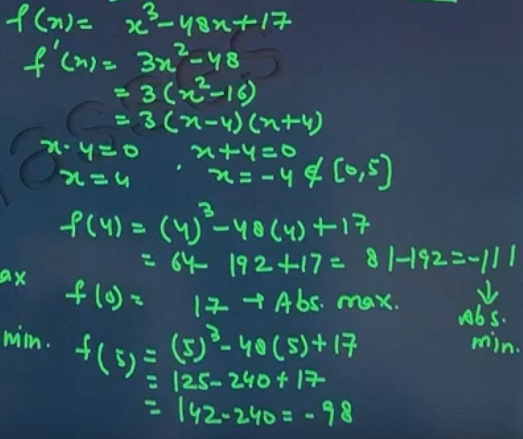 f(x) = x³-48x+17
f'(x) = 3x²-48
= 3(x²-16)
= 3(x-4)(x+4)
x-4=0 , x+4=0
x=4 x=-4 ∉ [0,5]
f(4) = (4)³-48(4)+17
= 64-192+17 = 81-192=-111
↓
Abs. min.
ax
f(0) = 17 → Abs. max.
min.
f(5) = (5)³-48(5)+17
= 125-240+17
= 142-240 = -98